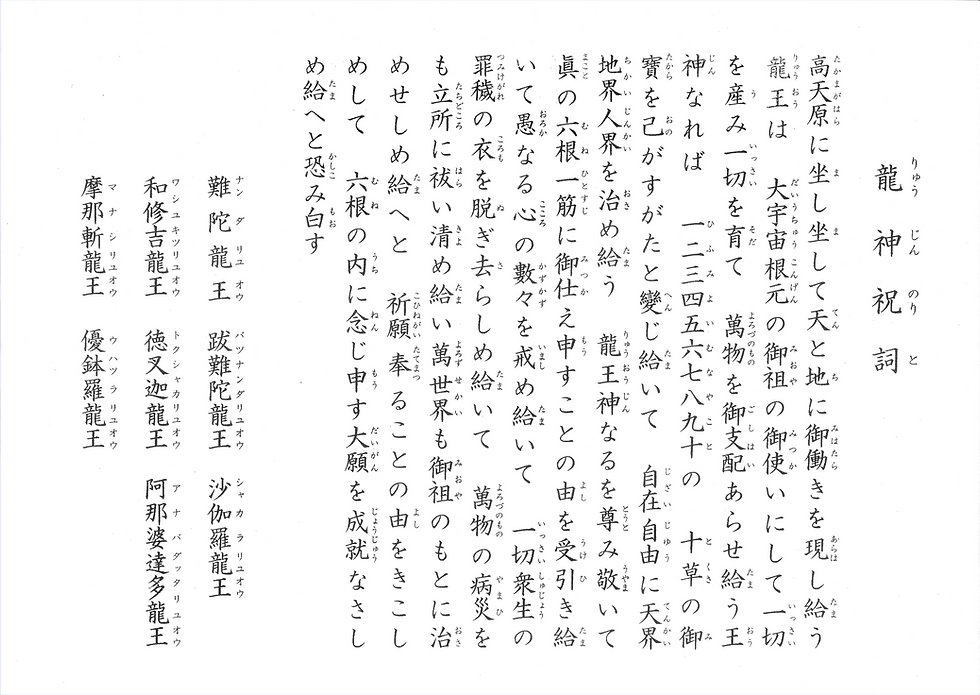 龍神祝詞
高天原に坐し坐して天と地に御働きを現し給う
龍王は　大宇宙根元の御祖の御使いにして一切
を産み一切を育て　萬物を御支配あらせ給う王
神なれば　一二三四五六七八九十の　十草の御
寶を己がすがたと變じ給いて　自在自由に天界
地界人界を治め給う　龍王神なるを尊み敬いて
眞の六根一筋に御仕え申すことの由を受引き給
いて愚なる心の數々を戒め給いて　一切衆生の
罪穢の衣を脱ぎ去らしめ給いて　萬物の病災を
も立所に祓い清め給い萬世界も御祖のもとに治
めせしめ給へと　祈願奉ることの由をきこし
めして　六根の内に念じ申す大願を成就なさし
め給へと恐み白す
難陀龍王　跋難陀龍王　沙伽羅龍王
和修吉龍王　徳叉迦龍王　阿那婆達多龍王
摩那斬龍王　優鉢羅龍王